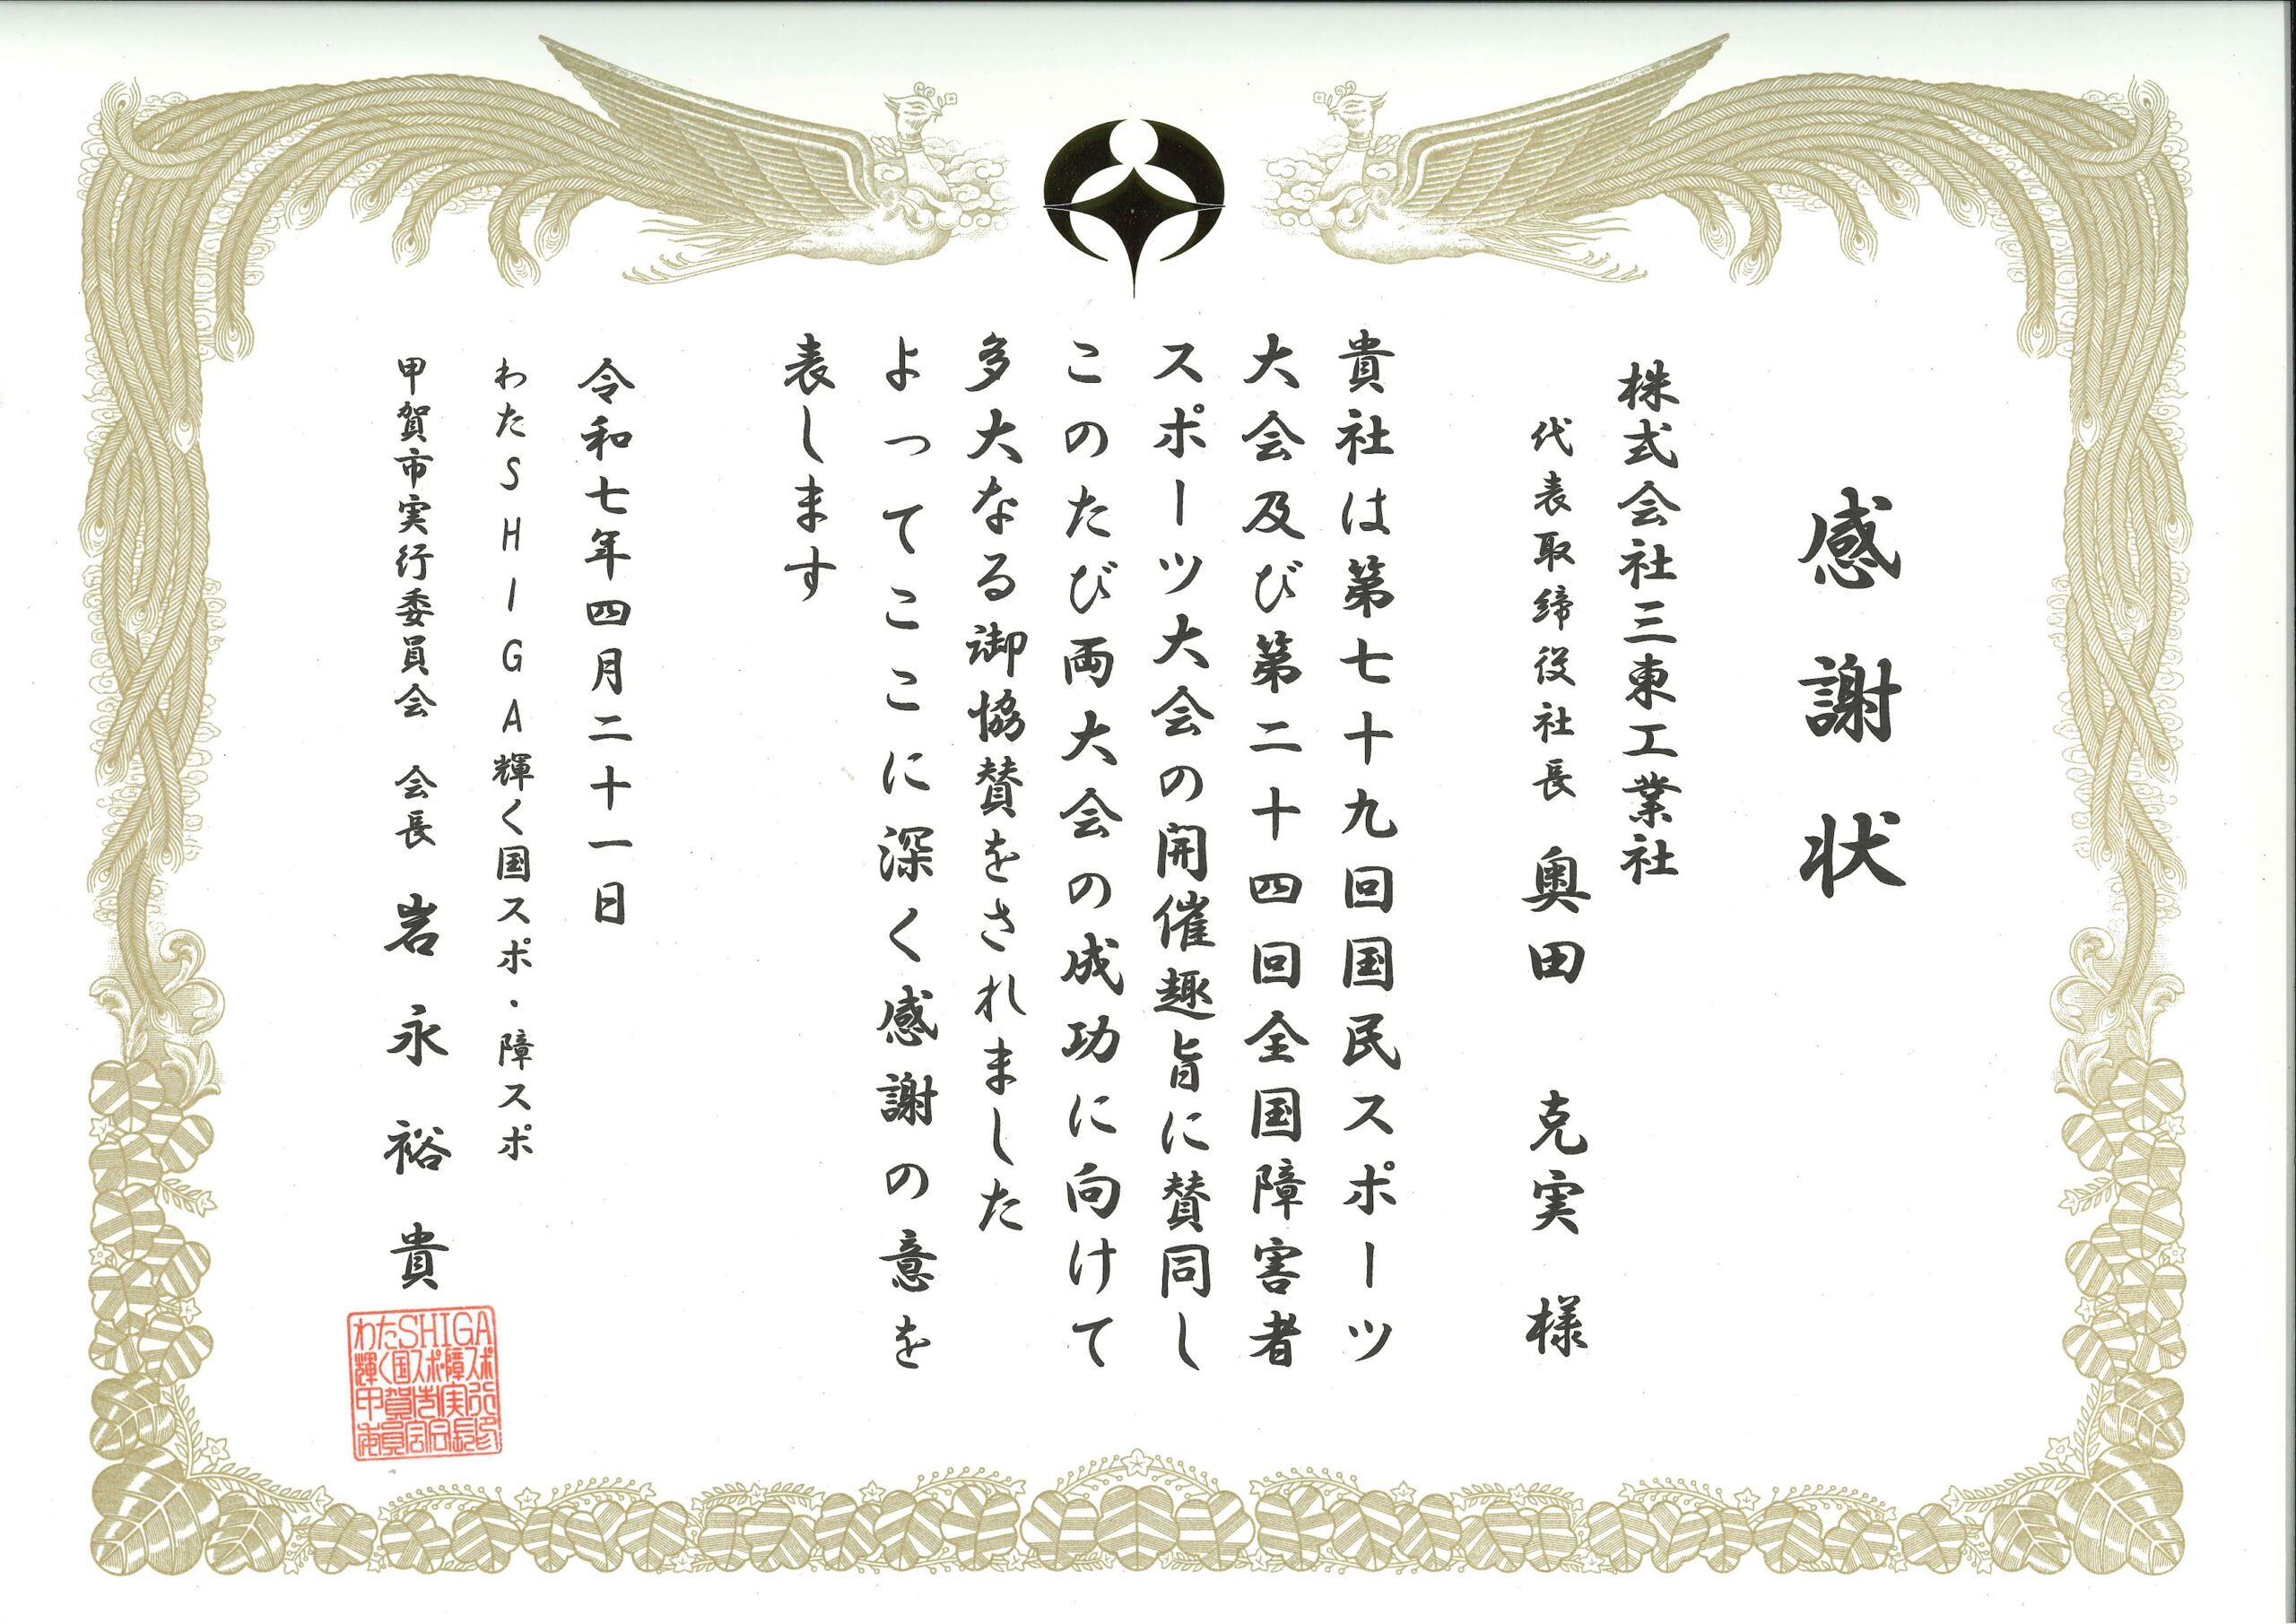 感謝状
株式会社三東工業社
代表取締役社長 奥田 克実 様
貴社は第七十九回国民スポーツ
大会及び第二十四回全国障害者
スポーツ大会の開催趣旨に賛同し
このたび両大会の成功に向けて
多大なる御協賛をされました
よってここに深く感謝の意を
表します
令和七年四月二十一日
わたSHIGA輝く国スポ・障スポ
甲賀市実行委員会 会長 岩永裕貴
わたSHIGA
輝く国スポ・障スポ
甲賀市実行
委員会会長印